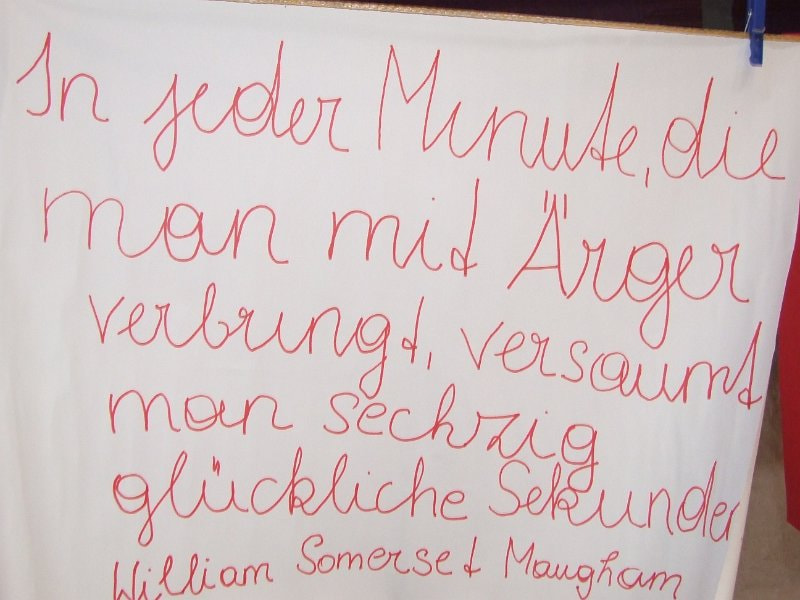 In jeder Minute, die
man mit Ärger
verbringt, versaumt
man sechzig
glückliche Sekunden
William Somerset Maugham